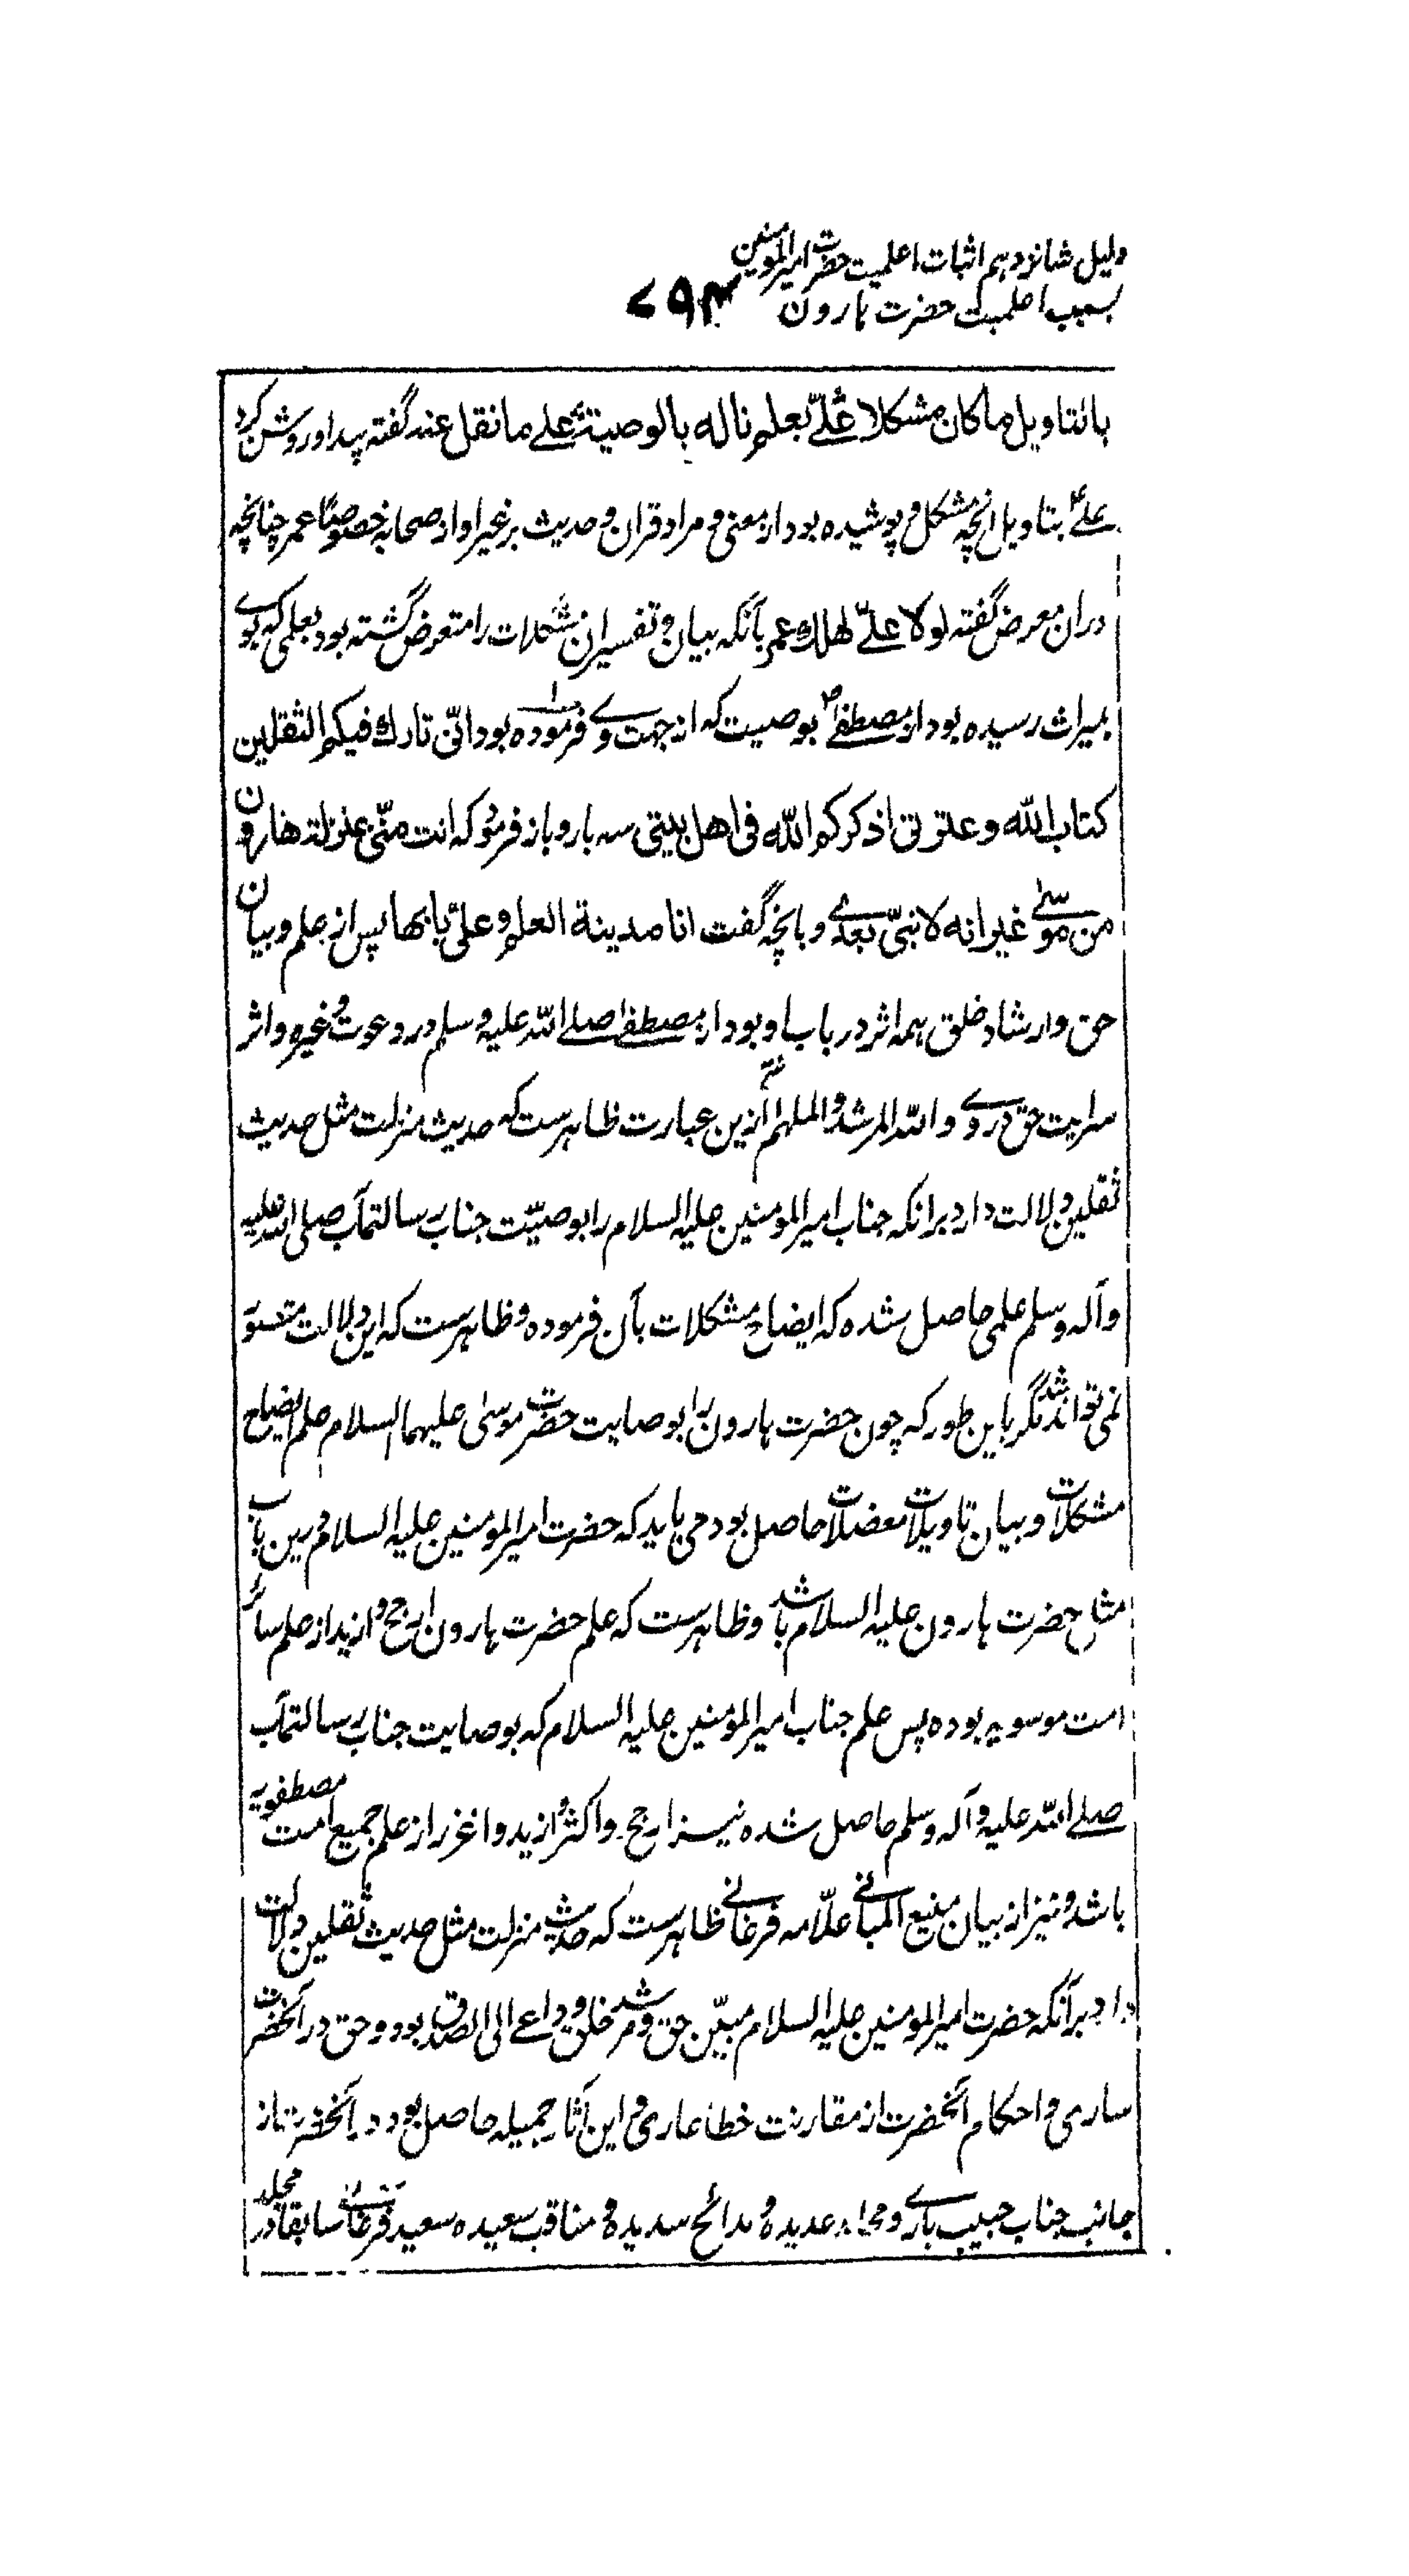 دلیل شانزدهم اثبات اعلمیت حضرت امیرالمومنین
بسبب اعلمیت حضرت هارون ۷۹۴
بالتاویل ما کان مشکلا علیّ بعلم ناله بالوصیة علے ما نقل عنه گفته پیدا و روشن کرد
علے بتاویل آنچه مشکل و پوشیده بود از معنی و مراد قران و حدیث بر غیر او از صحابه خصوصًا عمر چنانچه
دران معرض گفته لولا علیّ لهلك عمر بآنکه بیان و تفسیر ان مشکلات را متعرض گشته بود بعلمی که بوے
بمیراث رسیده بود از مصطفےٰ بوصیت که از جهت وے فرموده بود انّی تارك فیکم الثقلین
کتاب الله و عترتی اذکرکم الله فی اهل بیتی سه بار و باز فرمود که انت منّی بمنزلة هارون
من موسےٰ غیر انه لا نبیّ بعدے و بانچه گفت انا مدینة العلم و علیّ بابها پس از علم و بیان
حق و ارشاد خلق همه اثر در باب او بود از مصطفےٰ صلے الله علیه و سلم در دعوت و غیره و اثر
سرایت حق در وے و الله المرشد و الملهم ازین عبارت ظاهرست که حدیث منزلت مثل حدیث
ثقلین دلالت دارد برانکه جناب امیرالمومنین علیه السلام را بوصیّت جناب رسالتمآب صلی الله علیه
وآله وسلم علمی حاصل شده که ایضاح مشکلات بآن فرموده و ظاهرست که این دلالت متصوّر
نمی تواند شد مگر باین طور که چون حضرت هارون را بوصایت حضرت موسیٰ علیهما السلام علم ایضاح
مشکلات و بیان تاویلات معضلات حاصل بود می باید که حضرت امیرالمومنین علیه السلام درین باب
مثل حضرت هارون علیه السلام باشد و ظاهرست که علم حضرت هارون ارجح و ازید از علم سائر
امت موسویه بوده پس علم جناب امیرالمومنین علیه السلام که بوصایت جناب رسالتمآب
صلے الله علیه وآله وسلم حاصل شده نیز ارجح و اکثر و ازید و اغزر از علم جمیع امت مصطفویه
باشد و نیز از بیان منیع المبانے علّامه فرغانے ظاهرست که حدیث منزلت مثل حدیث ثقلین دلالت
دارد برآنکه حضرت امیرالمومنین علیه السلام مبیّن حق و مرشد خلق و داعے الی الصدق بود و حق در آنحضرت
ساری و احکام آنحضرت از مقارنت خطا عاری و این آثار جمیله حاصل بود در آنحضرت از
جانب جناب حبیب بارے و محامد عدیده و مدائح سدیده و مناقب سعیده سعید فرغانے سابقا در مجلد